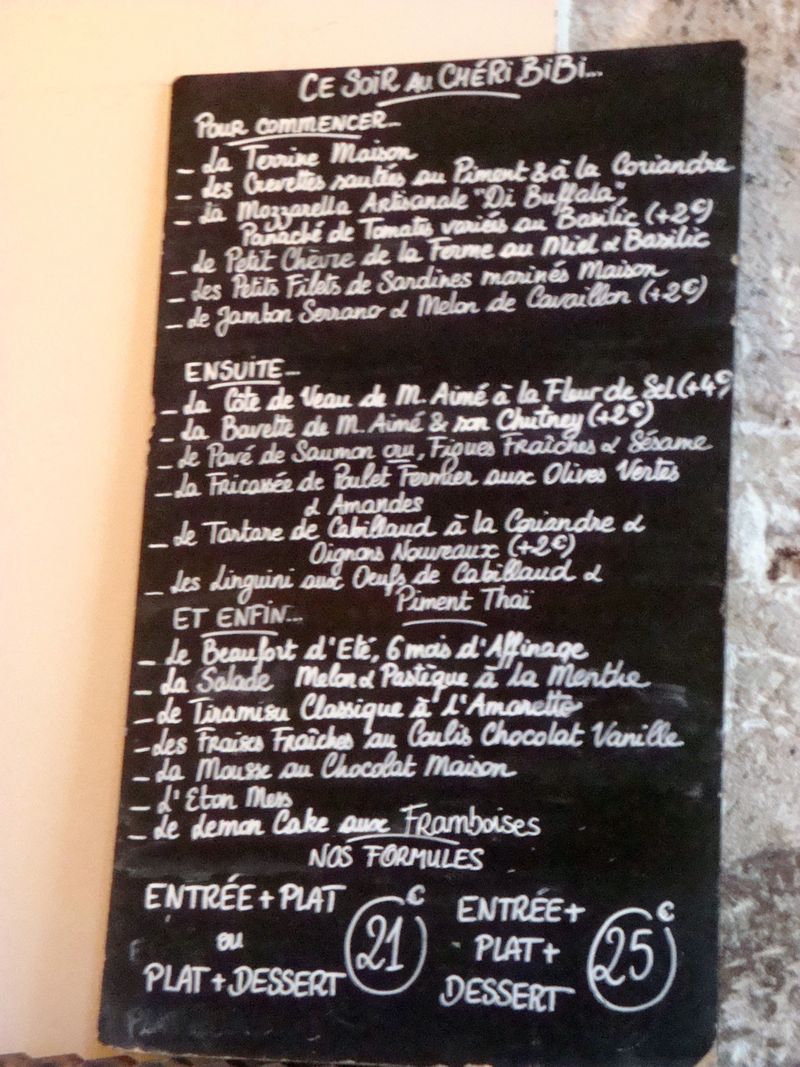 CE SOIR AU CHÉRI BIBI...
POUR COMMENCER...
_ La Terrine Maison
_ Les Crevettes sautées au Piment & à la Coriandre
_ La Mozzarella Artisanale "Di Buffala",
Panaché de Tomates variées au Basilic (+2€)
_ Le Petit Chèvre de la Ferme au Miel & Basilic
_ Les Petits Filets de Sardines marinés Maison
_ Le Jambon Serrano & Melon de Cavaillon (+2€)
ENSUITE...
_ La Côte de Veau de M. Aimé à la Fleur de Sel (+4€)
_ La Bavette de M. Aimé & son Chutney (+2€)
_ Le Pavé de Saumon cru, Figues Fraîches & Sésame
_ La Fricassée de Poulet Fermier aux Olives Vertes
& Amandes
_ Le Tartare de Cabillaud à la Coriandre &
Oignons Nouveaux (+2€)
_ Les Linguini aux Oeufs de Cabillaud &
Piment Thaï
ET ENFIN...
_ Le Beaufort d'Eté, 6 mois d'Affinage
_ La Salade Melon & Pastèque à la Menthe
_ Le Tiramisu Classique à l'Amaretto
_ Les Fraises Fraîches au Coulis Chocolat Vanille
_ La Mousse au Chocolat Maison
_ L'Eton Mess
_ Le Lemon Cake aux Framboises
NOS FORMULES
ENTRÉE + PLAT
ou
PLAT + DESSERT
21€
ENTRÉE +
PLAT +
DESSERT
25€